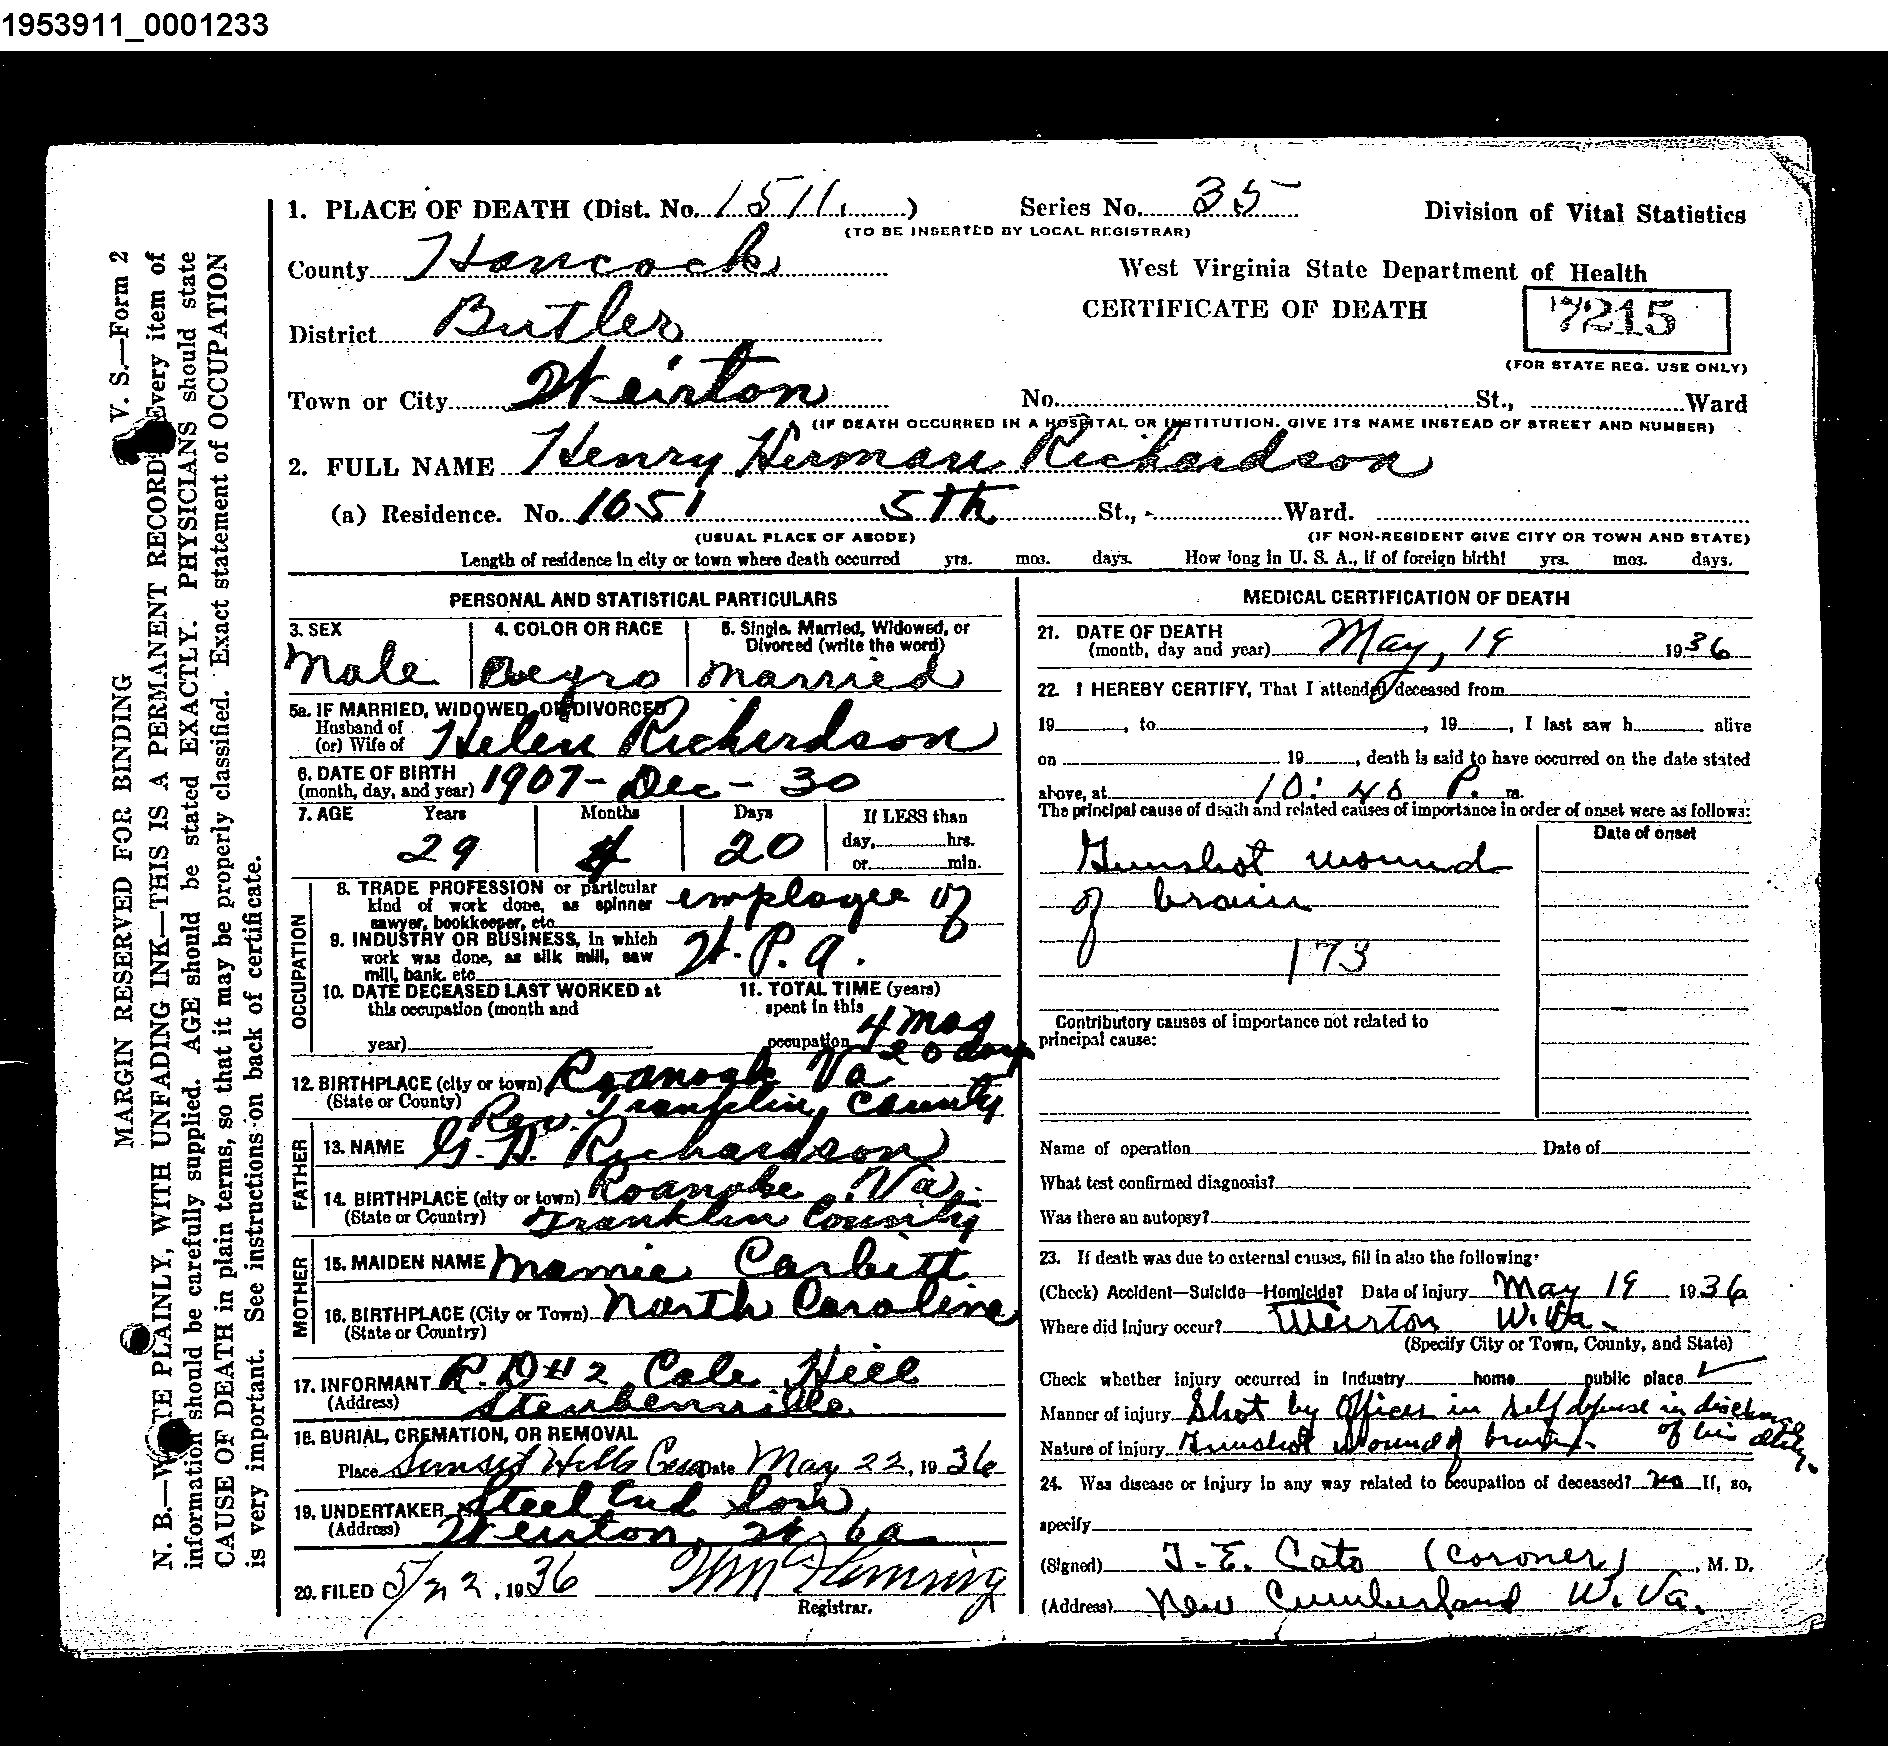 1953911_0001233
1. PLACE OF DEATH (Dist. No. 1511.)
Series No. 35
Division of Vital Statistics
(TO BE INSERTED BY LOCAL REGISTRAR)
County Hancock
West Virginia State Department of Health
CERTIFICATE OF DEATH
7215
(FOR STATE REG. USE ONLY)
District Butler
Town or City Weirton
No. St., Ward
(IF DEATH OCCURRED IN A HOSPITAL OR INSTITUTION, GIVE ITS NAME INSTEAD OF STREET AND NUMBER)
2. FULL NAME Henry Herman Richardson
(a) Residence. No. 1051 5th St., Ward.
(USUAL PLACE OF ABODE) (IF NON-RESIDENT GIVE CITY OR TOWN AND STATE)
Length of residence in city or town where death occurred yrs. mos. days. How long in U. S. A., if of foreign birth? yrs. mos. days.
V. S.—Form 2
MARGIN RESERVED FOR BINDING
N. B.—WRITE PLAINLY, WITH UNFADING INK—THIS IS A PERMANENT RECORD Every item of
information should be carefully supplied. AGE should be stated EXACTLY. PHYSICIANS should state
CAUSE OF DEATH in plain terms, so that it may be properly classified. Exact statement of OCCUPATION
is very important. See instructions on back of certificate.
PERSONAL AND STATISTICAL PARTICULARS
3. SEX
Male
4. COLOR OR RACE
Negro
5. Single, Married, Widowed, or
Divorced (write the word)
Married
5a. IF MARRIED, WIDOWED, OR DIVORCED
Husband of
(or) Wife of Helen Richardson
6. DATE OF BIRTH
(month, day, and year) 1907 - Dec - 30
7. AGE Years Months Days If LESS than
29 4 20 day, hrs.
or min.
OCCUPATION
8. TRADE PROFESSION or particular
kind of work done, as spinner
sawyer, bookkeeper, etc. employee of
9. INDUSTRY OR BUSINESS, in which
work was done, as silk mill, saw
mill, bank, etc. W.P.A.
10. DATE DECEASED LAST WORKED at
this occupation (month and
year)
11. TOTAL TIME (years)
spent in this
occupation 4 mos
20 days
12. BIRTHPLACE (city or town) Roanoak Va
(State or County) Franklin, County
FATHER
13. NAME Rev. G. D. Richardson
14. BIRTHPLACE (city or town) Roanoke Va.
(State or Country) Franklin County
MOTHER
15. MAIDEN NAME Mamie Carbitt
16. BIRTHPLACE (City or Town) North Caroline
(State or Country)
17. INFORMANT R.D #2 Cole Hill
(Address) Steubenville
18. BURIAL, CREMATION, OR REMOVAL
Place Sunset Hills Cem Date May 22, 1936
19. UNDERTAKER Steel and Son
(Address) Weirton, W Va
20. FILED 5/22, 1936
Registrar.
MEDICAL CERTIFICATION OF DEATH
21. DATE OF DEATH
(month, day and year) May, 19 1936
22. I HEREBY CERTIFY, That I attended deceased from
19 , to , 19 , I last saw h alive
on 19 , death is said to have occurred on the date stated
above, at 10:45 P. m.
The principal cause of death and related causes of importance in order of onset were as follows:
Date of onset
Gunshot wound
of brain
173
Contributory causes of importance not related to
principal cause:
Name of operation Date of
What test confirmed diagnosis?
Was there an autopsy?
23. If death was due to external causes, fill in also the following:
(Check) Accident—Suicide—Homicide? Date of injury May 19 1936
Where did injury occur? Weirton W.Va.
(Specify City or Town, County, and State)
Check whether injury occurred in Industry home public place ✓
Manner of injury Shot by Officer in self defense in discharge
of his duty.
Nature of injury Gunshot wound of brain.
24. Was disease or injury in any way related to occupation of deceased? no If, so,
specify
(Signed) J. E. Cato (Coroner), M. D.
(Address) New Cumberland W. Va.